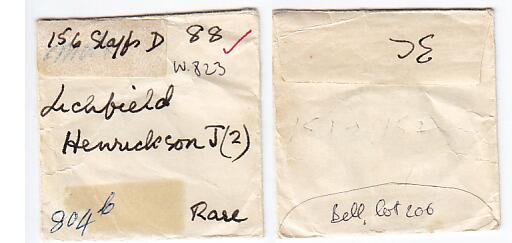 156 Staffs D 88
W.823
Lichfield
Henrickson J (2)
804b
Rare
Bell, lot 206